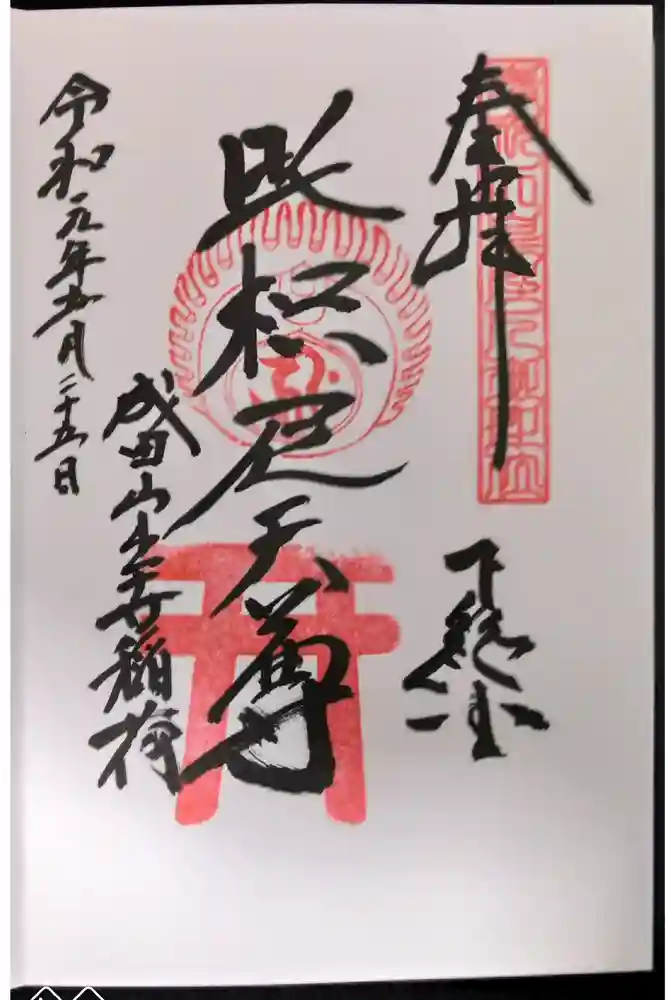 奉拝
下総
吒枳尼天尊
成田山出世稲荷
令和元年五月二十五日